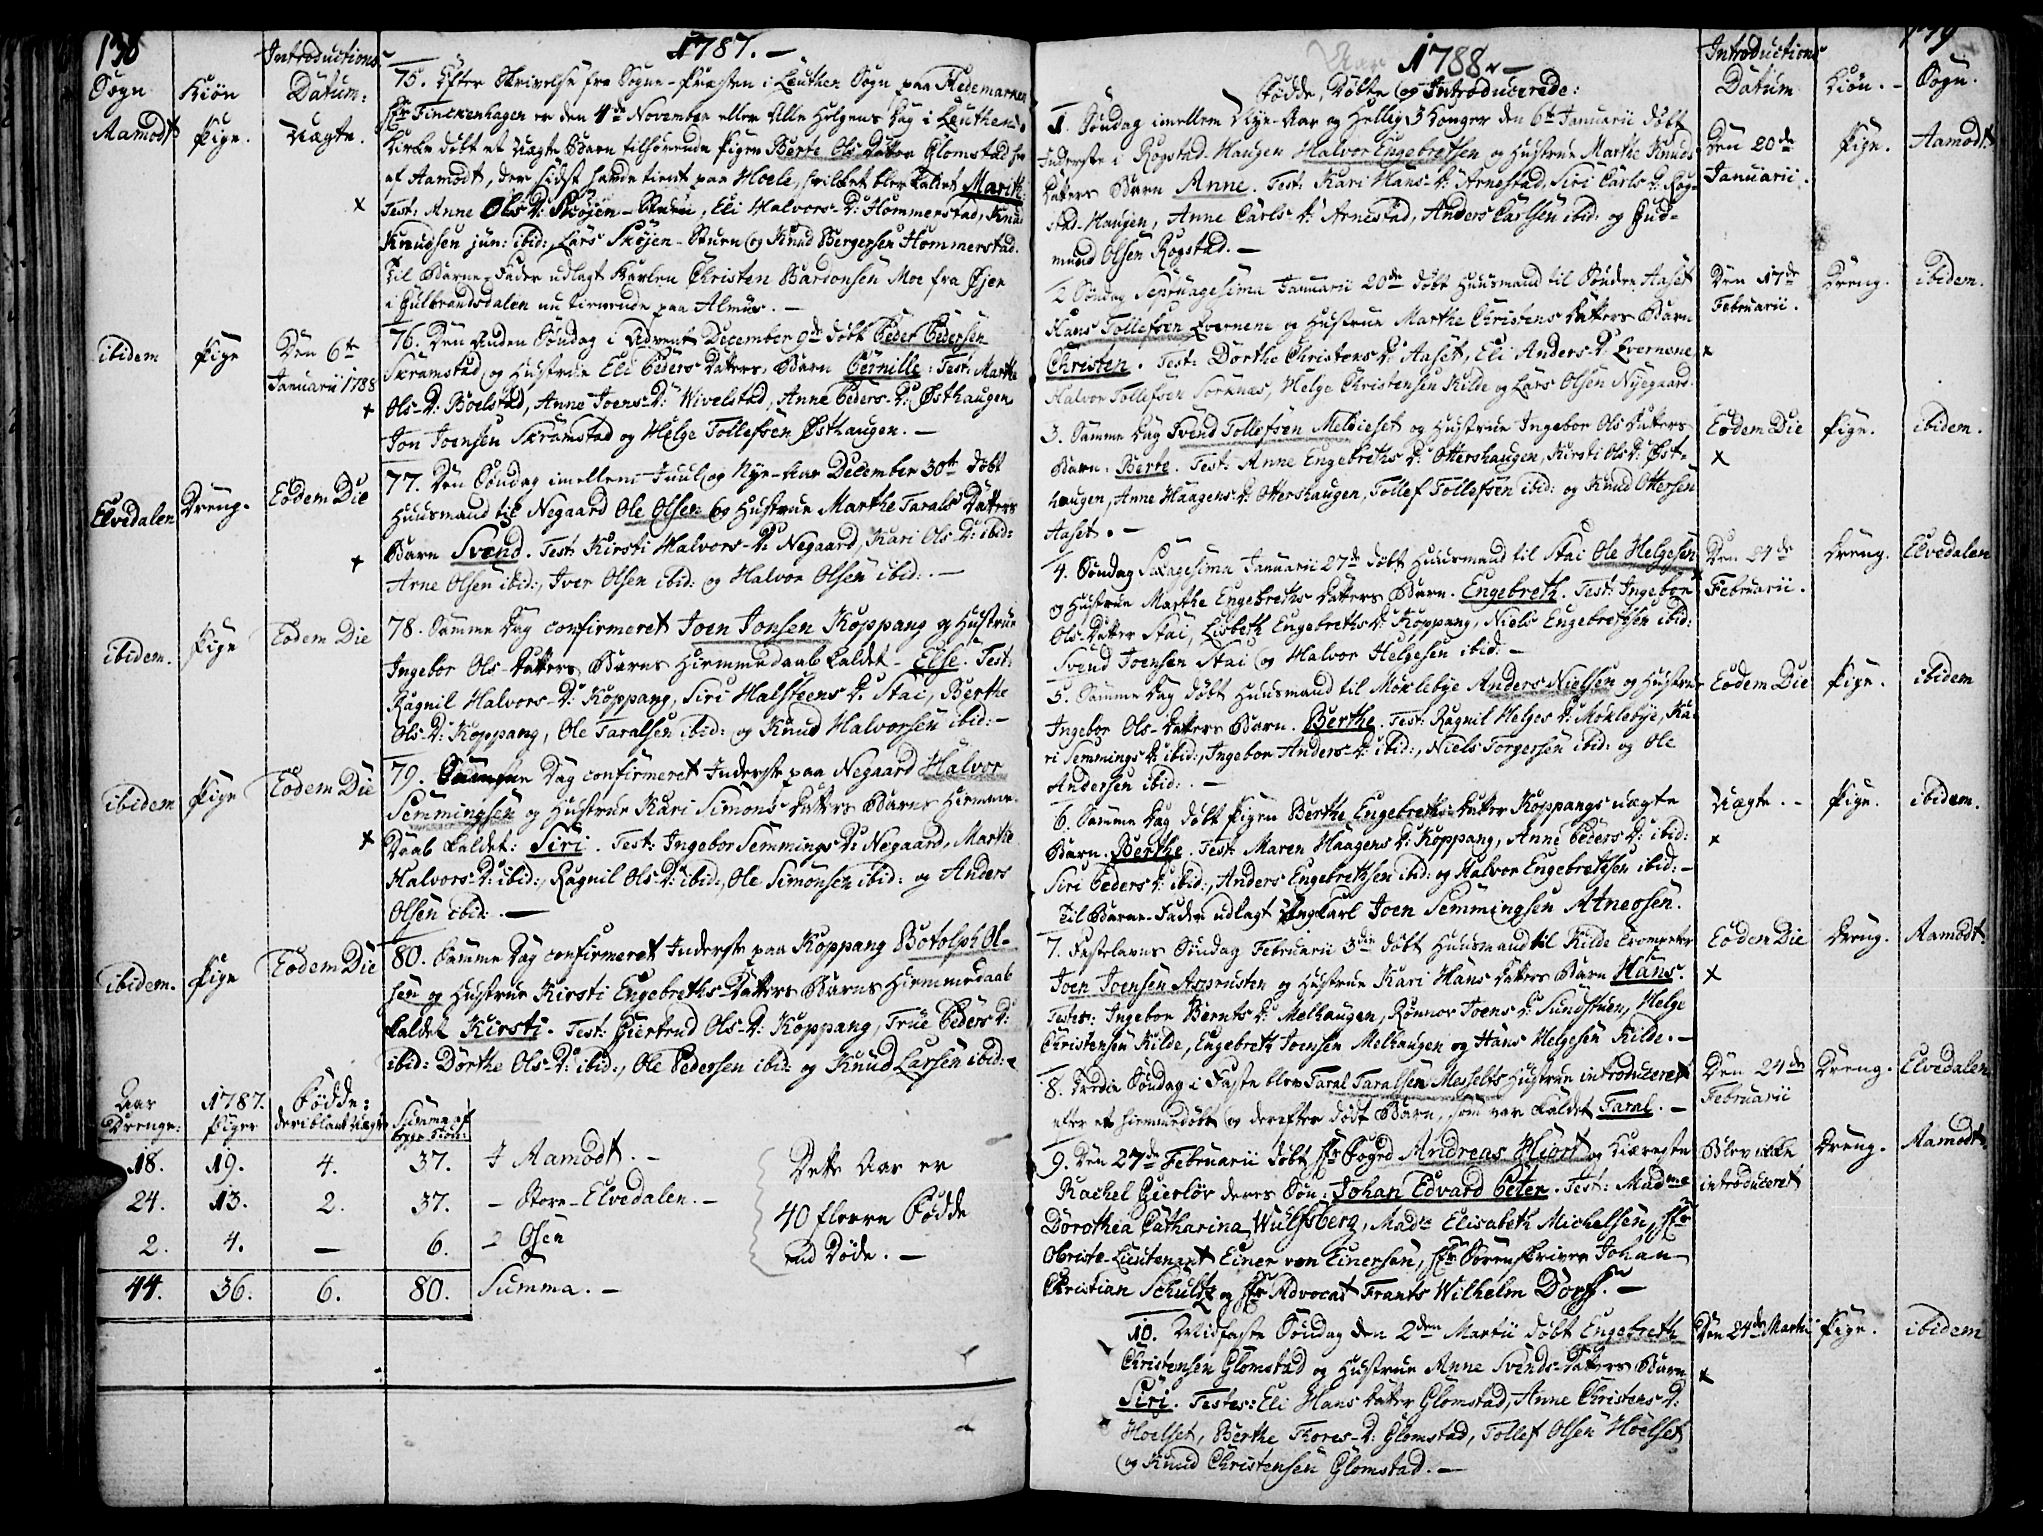 138
1787. —
Sogn Kiön Introductions Datum:
Aamodt Pige. Uægte.
75. Efter Skrivelse fra Sogne-Præsten i Leuthen Sogn paa Hedemarken
Hr Finckenhagen er den 4de November eller Alle Helgens Dag i Leuthens
Kirke döbt et Uægte Barn tilhörende Pigen Berte Ols Datter Glomstad her
af Aamodt, der sidst havde tient paa Hoele, hvilket blev kaldet Marith.
Test: Anne Ols D: Sköjen-Stuen, Eli Halvors-D: Hommerstad, Knud
Knudsen jun: ibid:, Lars Skøjen-Stuen og Knud Bergersen Hommerstad.
Til Barne-Fader udlagt Karlen Christen Baronsen Moe fra Øjer
i Gulbrandsdalen nu tienende paa Almus. —
ibidem Pige Den 6te Januarii 1788
76. Den Anden Söndag i Advent December 9de döbt Peder Pedersen
Skramstad og Hustrue Eli Peders Datters Barn Pernille. Test: Marthe
Ols-D: Boelstad, Anne Joens-D: Wivelstad, Anne Peders-D: Østhaugen
Jon Joensen Skramstad og Helge Tollefsen Østhaugen. —
Elvedalen Dreng. Eodem Die
77. Den Söndag imellem Juul og Nye-Aar December 30te döbt
Huusmand til Negaard Ole Olsen og Hustrue Marthe Tarals Datters
Barn Svend. Test: Kirsti Halvors-D: Negaard, Kari Ols-D: ibid:
Arne Olsen ibid:, Iver Olsen ibid: og Halvor Olsen ibid:. —
ibidem. Pige Eodem Die
78. Samme Dag confirmeret Joen Jonsen Koppang og Hustrue
Ingebor Ols-Datters Barns Hiemmedaab kaldet - Else. Test:
Ragnil Halvors-D: Koppang, Siri Halsteens D: Stai, Berthe
Ols-D: Koppang, Ole Taralsen ibid: og Knud Halvorsen ibid: —
ibidem Pige Eodem Die
79. Samme Dag confirmeret Inderste paa Negaard Halvor
Semmingsen og Hustrue Kari Simons Datters Barns Hiemme-
Daab kaldet: Siri. Test: Ingebor Semmings D: Negaard, Marthe
Halvors-D: ibid:, Ragnil Ols-D: ibid:, Ole Simonsen ibid: og Anders
Olsen ibid:. —
ibidem. Pige Eodem Die
80. Samme Dag confirmeret Inderste paa Koppang Botolph Ol-
sen og Hustrue Kirsti Engebreths-Datters Barns Hiemmedaab
kaldet Kirsti. Test: Giertrud Ols-D: Koppang, True Peders D:
ibid: Dorthe Ols-D: ibid:, Ole Pedersen ibid: og Knud Larsen ibid:
Aar 1787. Födde:
Drenge: Piger deriblant Uægte Summa af begge Kiön:
18. 19. 4. 37. I Aamodt. —
24. 13. 2. 37. - Store-Elvedalen. —
2. 4. — 6. - Osen
44. 36. 6. 80. Summa. —
Dette Aar er
40 fleere Födde
end Döde. —
179
Aar 1788. —
Födde, Döbte og Introducerede:
Introductions Datum Kiön. Sogn.
1. Söndag imellem Nye-Aar og Hellig 3 Konger den 6te Januarii döbt
Inderste i Rogstad-Haugen Halvor Engebretsen og Hustrue Marthe Knuds
Datters Barn Anne. Test: Kari Hans-D: Arnestad, Siri Carls D: Rog-
stad-Haugen, Anne Carls-D: Arnestad, Anders Carlsen ibid: og Gud-
mund Olsen Rogstad. —
Den 20de Januarii. Pige. Aamodt
2 Söndag Septuagesima Januarii 20de döbt Huusmand til Söndre Aaset
Hans Tollefsen Evernene og Hustrue Marthe Christens Datters Barn
Christen. Test: Dorthe Christens D: Aaset, Eli Anders-D: Evernene
Halvor Tollefsen Sornæs, Helge Christensen Kilde og Lars Olsen Nyegaard.
Den 17de Februarii. Dreng. ibidem.
3. Samme Dag Svend Tollefsen Meldieset og Hustrue Ingebor Ols Datters
Barn. Berte. Test: Anne Engebreths D: Ottershaugen, Kirsti Ols D: Øst-
haugen, Anne Haagens D: Ottershaugen, Tollef Tollefsen ibid: og Knud Ottersen
Aaset. —
Eodem Die Pige. ibidem.
4. Söndag Sexagesima Januarii 27de döbt Huusmand til Stai Ole Helgesen
og Hustrue Marthe Engebreths Datters Barn. Engebreth. Test: Ingebor
Ols-Datter Stai, Lisbeth Engebreths D: Koppang, Niels Engebrethsen ibid:
Svend Joensen Stai og Halvor Helgesen ibid: —
Den 24de Februarii. Dreng. Elvedalen
5. Samme Dag döbt Huusmand til Moklebye Anders Nielsen og Hustrue
Ingebor Ols-Datters Barn. Berthe. Test: Ragnil Helges D: Moklebye, Ka-
ri Semmings D: ibid:, Ingebor Anders-D: ibid:, Niels Torgersen ibid: og Ole
Andersen ibid:. —
Eodem Die Pige. ibidem
6. Samme Dag döbt Pigen Berthe Engebreths-Datter Koppangs uægte
Barn. Berthe. Test: Maren Haagens D: Koppang, Anne Peders D: ibid:
Siri Peders D: ibid:, Anders Engebrethsen ibid: og Halvor Engebrethsen ibid: —
Til Barne-Fader udlagt Ungkarl Joen Semmingsen Atneosen.
Uægte. — Pige. ibidem.
7. Fastelavns Söndag Februarii 3die döbt Huusmand til Kilde Trompeter
Joen Joensen Asprusten og Hustrue Kari Hans Datters Barn Hans.
Testes: Ingebor Bernts D: Melhaugen, Ronnor Joens D: Sundstuen, Helge
Christensen Kilde, Engebreth Joensen Melhaugen og Hans Helgesen Kilde. —
Eodem Die Dreng. Aamodt.
8. Tredie Söndag i Faste blev Taral Taralsen Messelts Hustrue introduceret
efter et hiemmedöbt og derefter dödt Barn, som var kaldet Taral. —
Den 24de Februarii Dreng. Elvedalen
9. Den 27de Februarii döbt Hr Foged Andreas Hiort og Kiæreste
Rachel Gierlöv deres Sön: Johan Edvard Peter. Test: Madme
Dorothea Catharina Wulfsberg, Madme Elisabeth Michelsen, Hr
Obriste-Lieutenant Einer von Einersen, Hr Sorenskriver Johan
Christian Schultz og Hr Advocat Frants Wilhelm Dorff. —
Blev ikke introduceret Dreng. Aamodt.
10. Midfaste Söndag den 2den Martii döbt Engebreth
Christensen Glomstad og Hustrue Anne Svends-Datters Barn
Siri. Testes: Eli Hans Datter Glomstad, Anne Christens D:
Hoelset, Berthe Thores-D: Glomstad, Tollef Olsen Hoelset
og Knud Christensen Glomstad. —
Den 24de Martii Pige. ibidem